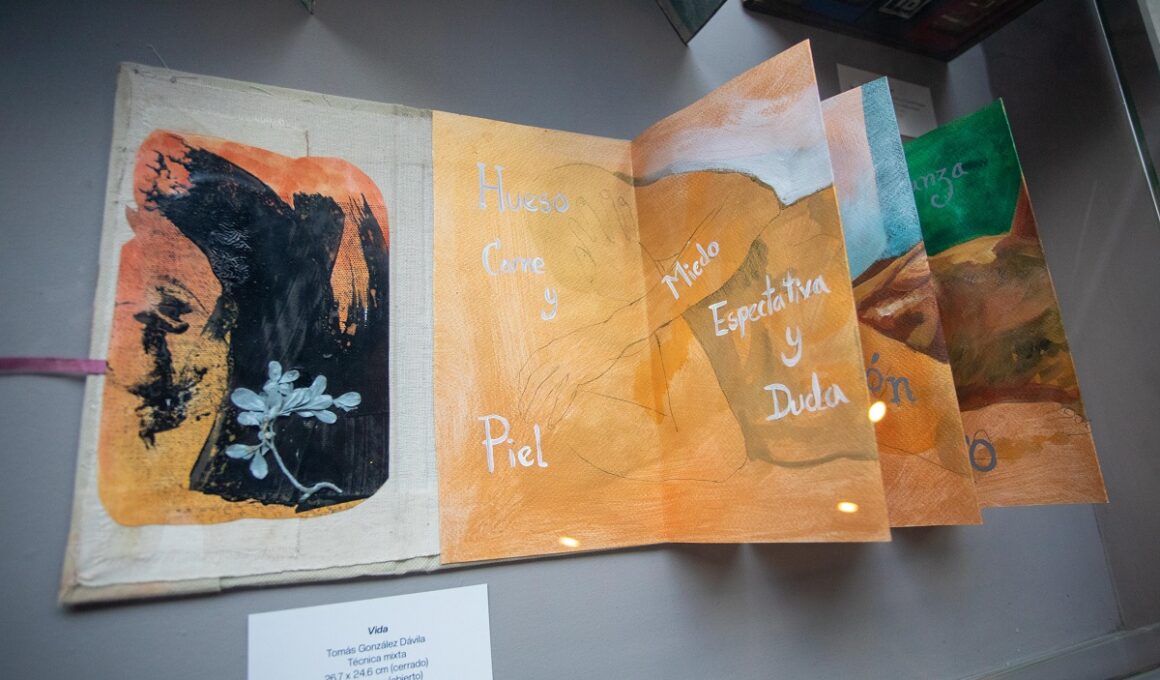 Hueso
Carne
y
Piel
Miedo
Espectativa
y
Duda
ón
anza
o
Vida
Tomás González Dávila
Técnica mixta
26.7 x 24.6 cm (cerrado)